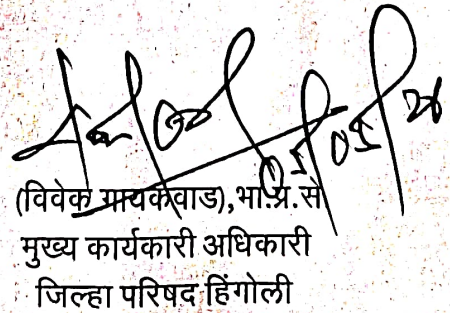 (विवेक गायकवाड),भा.प्र.से
मुख्य कार्यकारी अधिकारी
जिल्हा परिषद हिंगोली